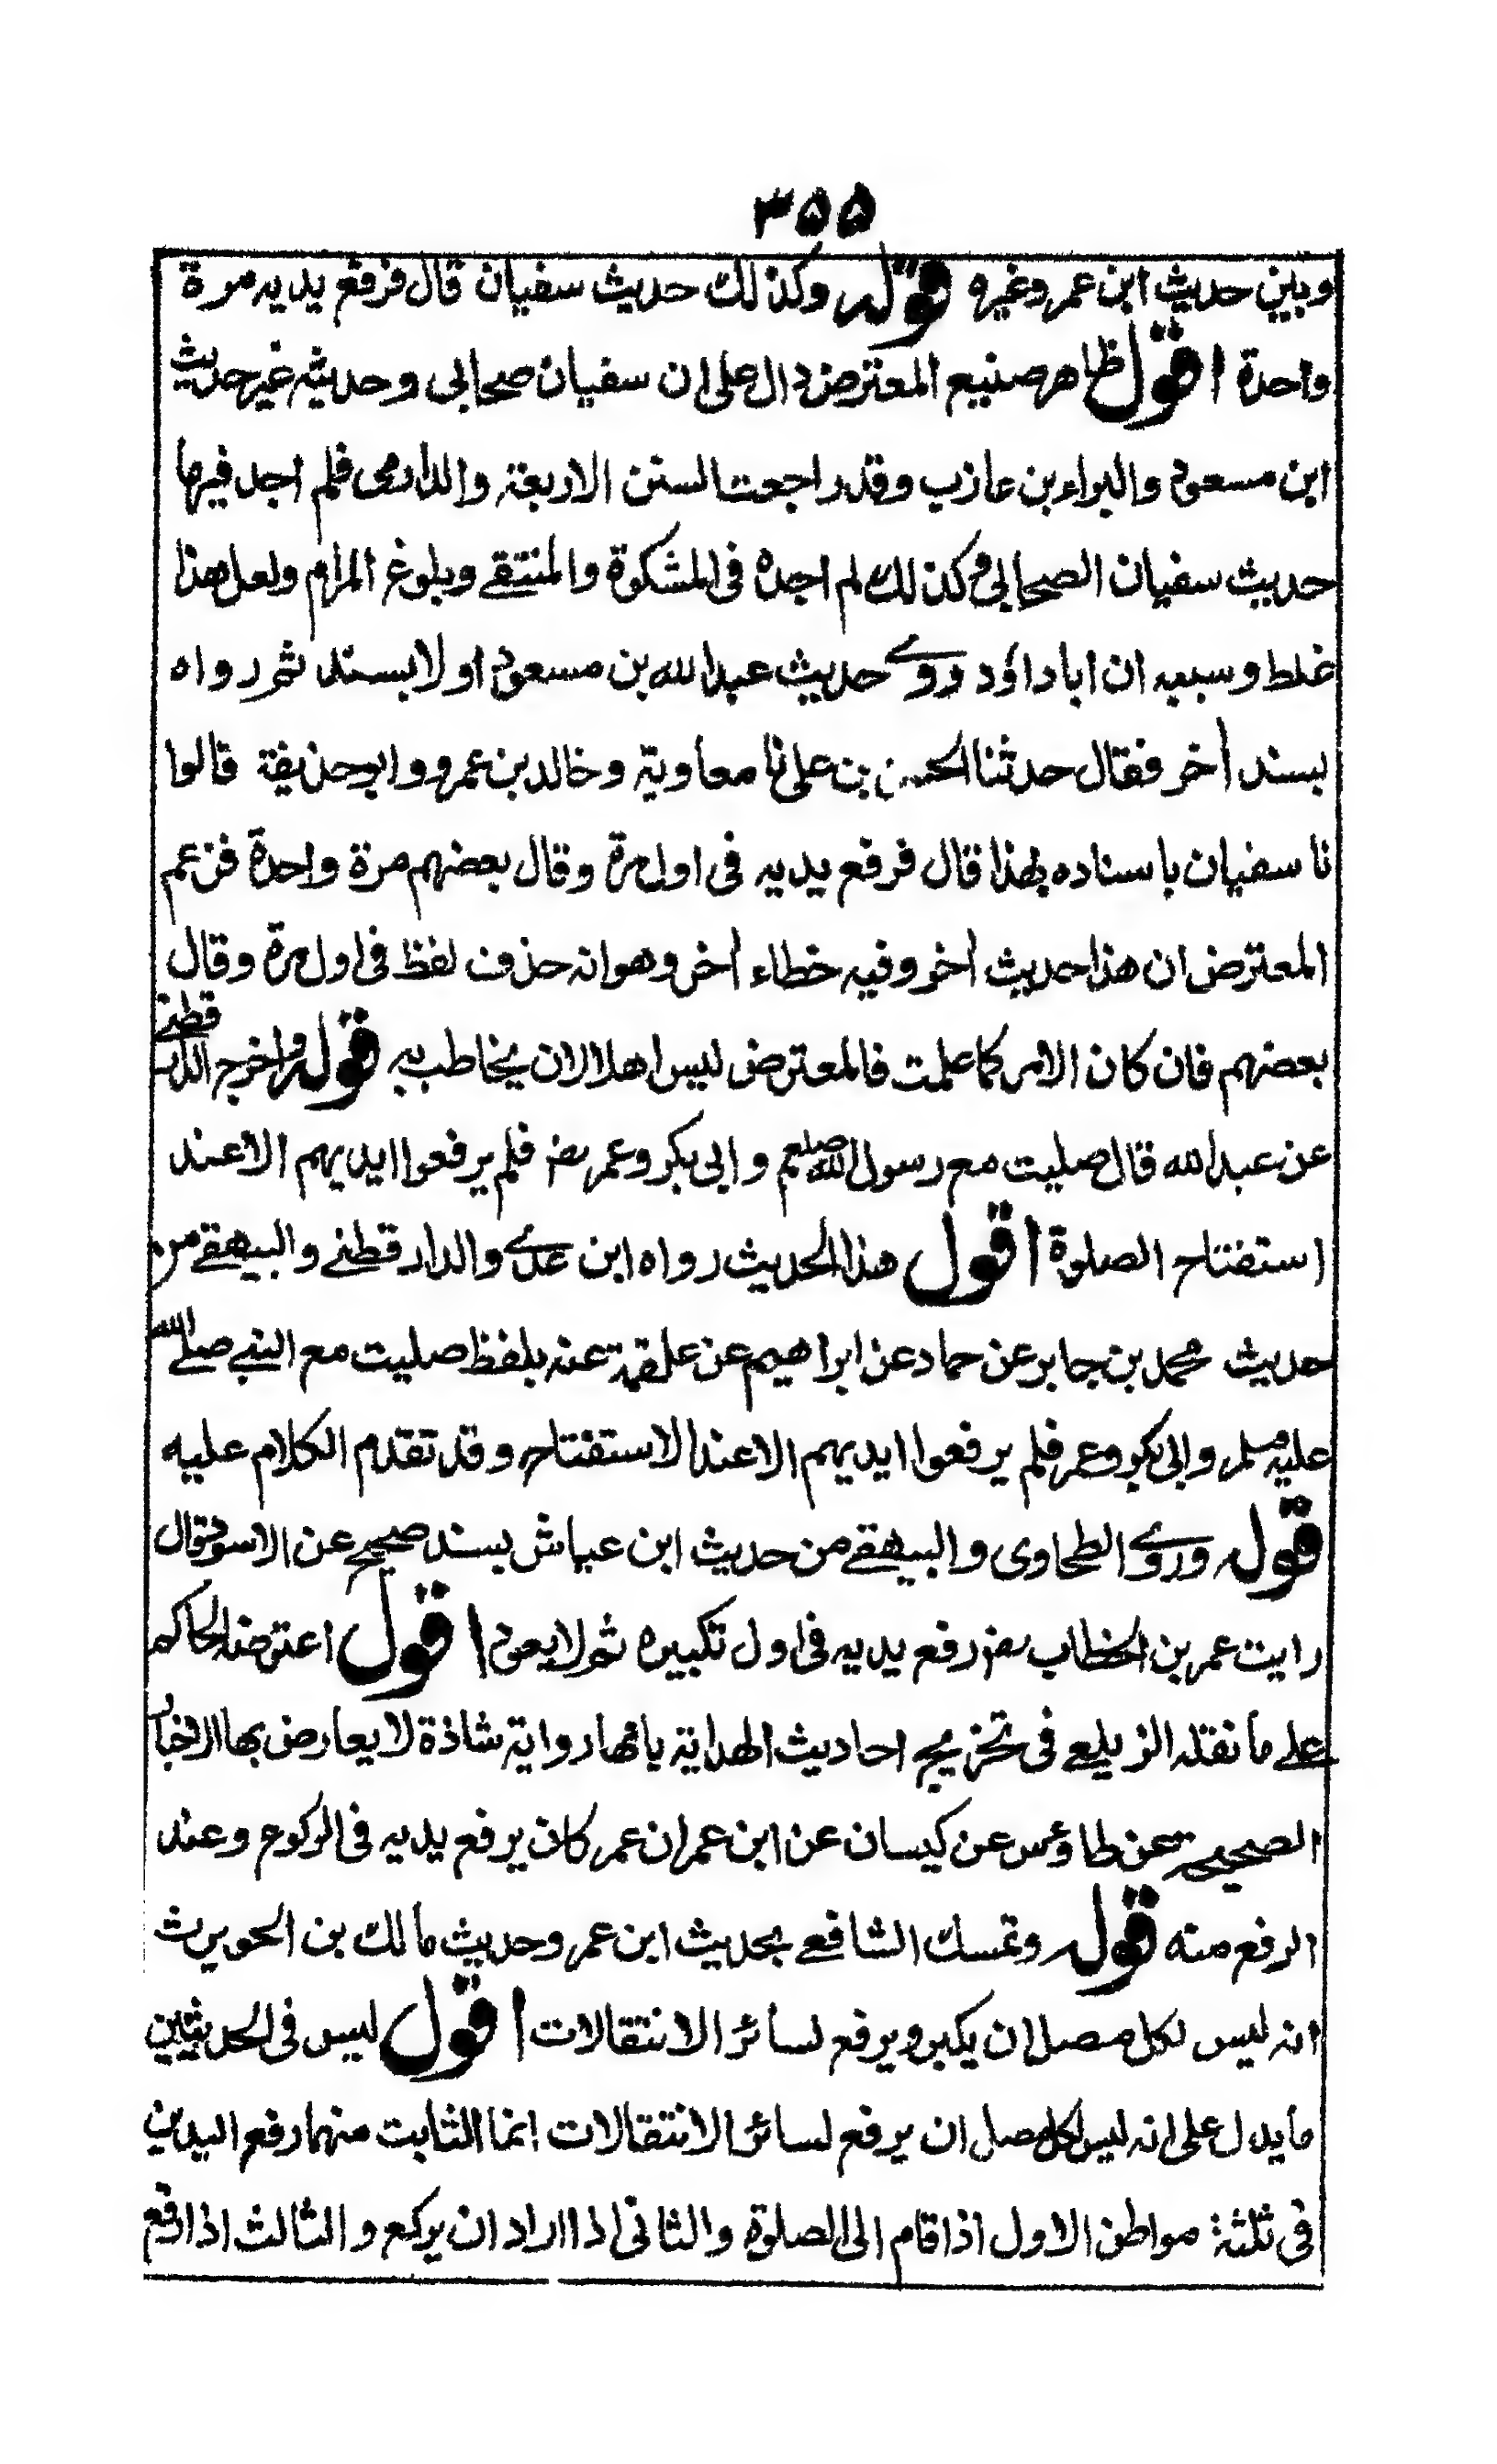 ۳۵۵
وبين حديث ابن عمر وغيره قوله وكذلك حديث سفيان قال فرفع يديه مرة
واحدة اقول ظاهر صنيع المعترض دال على ان سفيان صحابى وحديثه غير حديث
ابن مسعود والبراء بن عازب وقد راجعت السنن الاربعة والدارمى فلم اجد فيها
حديث سفيان الصحابى وكذلك لم اجده فى المشكوة والمنتقے وبلوغ المرام ولعل هذا
غلط وسببه ان اباداؤد روے حديث عبد الله بن مسعود اولا بسند ثم رواه
بسند آخر فقال حدثنا الحسن بن على نا معاوية وخالد بن عمرو وابوحذيفة قالوا
نا سفيان باسناده بهذا قال فرفع يديه فى اول مرة وقال بعضهم مرة واحدة فزعم
المعترض ان هذا حديث آخر وفيه خطاء آخر وهو انه حذف لفظ فى اول مرة وقال
بعضهم فان كان الامر كما علمت فالمعترض ليس اهلا لان يخاطب به قوله واخرج الدارقطنے
عن عبد الله قال صليت مع رسول الله صلعم وابى بكر وعمر رضـ فلم يرفعوا ايديهم الا عند
استفتاح الصلوة اقول هذا الحديث رواه ابن عدے والدارقطنے والبيهقے من
حديث محمد بن جابر عن حماد عن ابراهيم عن علقمة عنه بلفظ صليت مع النبے صلے الله
عليه وسلم وابى بكر وعمر فلم يرفعوا ايديهم الا عند الاستفتاح وقد تقدم الكلام عليه
قوله وروے الطحاوى والبيهقے من حديث ابن عياش بسند صحيح عن الاسود قال
رايت عمر بن الخطاب رضـ رفع يديه فى اول تكبيره ثم لا يعود اقول اعترضه الحاكم
علے ما نقله الزيلعے فى تخريج احاديث الهداية بانها رواية شاذة لا يعارض بها الاخبار
الصحيحة عن طاؤس عن كيسان عن ابن عمر ان عمر كان يرفع يديه فى الركوع وعند
الرفع منه قوله وتمسك الشافعے بحديث ابن عمر وحديث مالك بن الحويرث
انه ليس لكل مصل ان يكبر ويرفع لسائر الانتقالات اقول ليس فى الحديثين
ما يدل على انه ليس لكل مصل ان يرفع لسائر الانتقالات انما الثابت منهما رفع اليدين
فى ثلثة مواطن الاول اذا قام الى الصلوة والثانى اذا اراد ان يركع والثالث اذا رفع